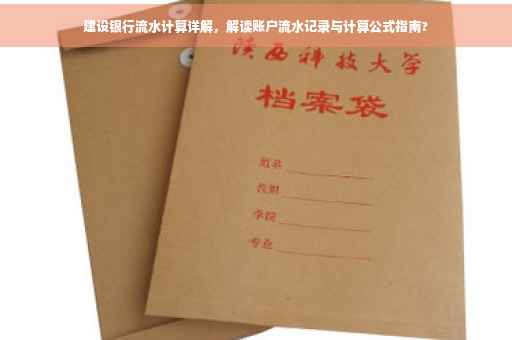 建设银行流水计算详解，解读账户流水记录与计算公式指南?
陕西科技大学
档案袋
姓名
学院
专业